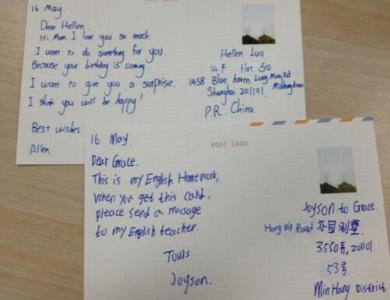 16 May.
Dear Hellen
Hi Mum I love you so much
I want to do something for you.
Because your birthday is coming
I want to give you a surprise.
I think you will be happy!
Best wishes
Allen.
Hellen Luo
Flat 50
1458 Blue haven Long Ming Rd
Shanghai 201101
P.R. China
POST CARD
16 May.
Dear Grace.
This is my English Homework,
When you get this card,
please send a message
to my English teacher.
Tours
Joyson.
Joyson to Grace.
Road
3550弄, 201101
53号
MinHang District